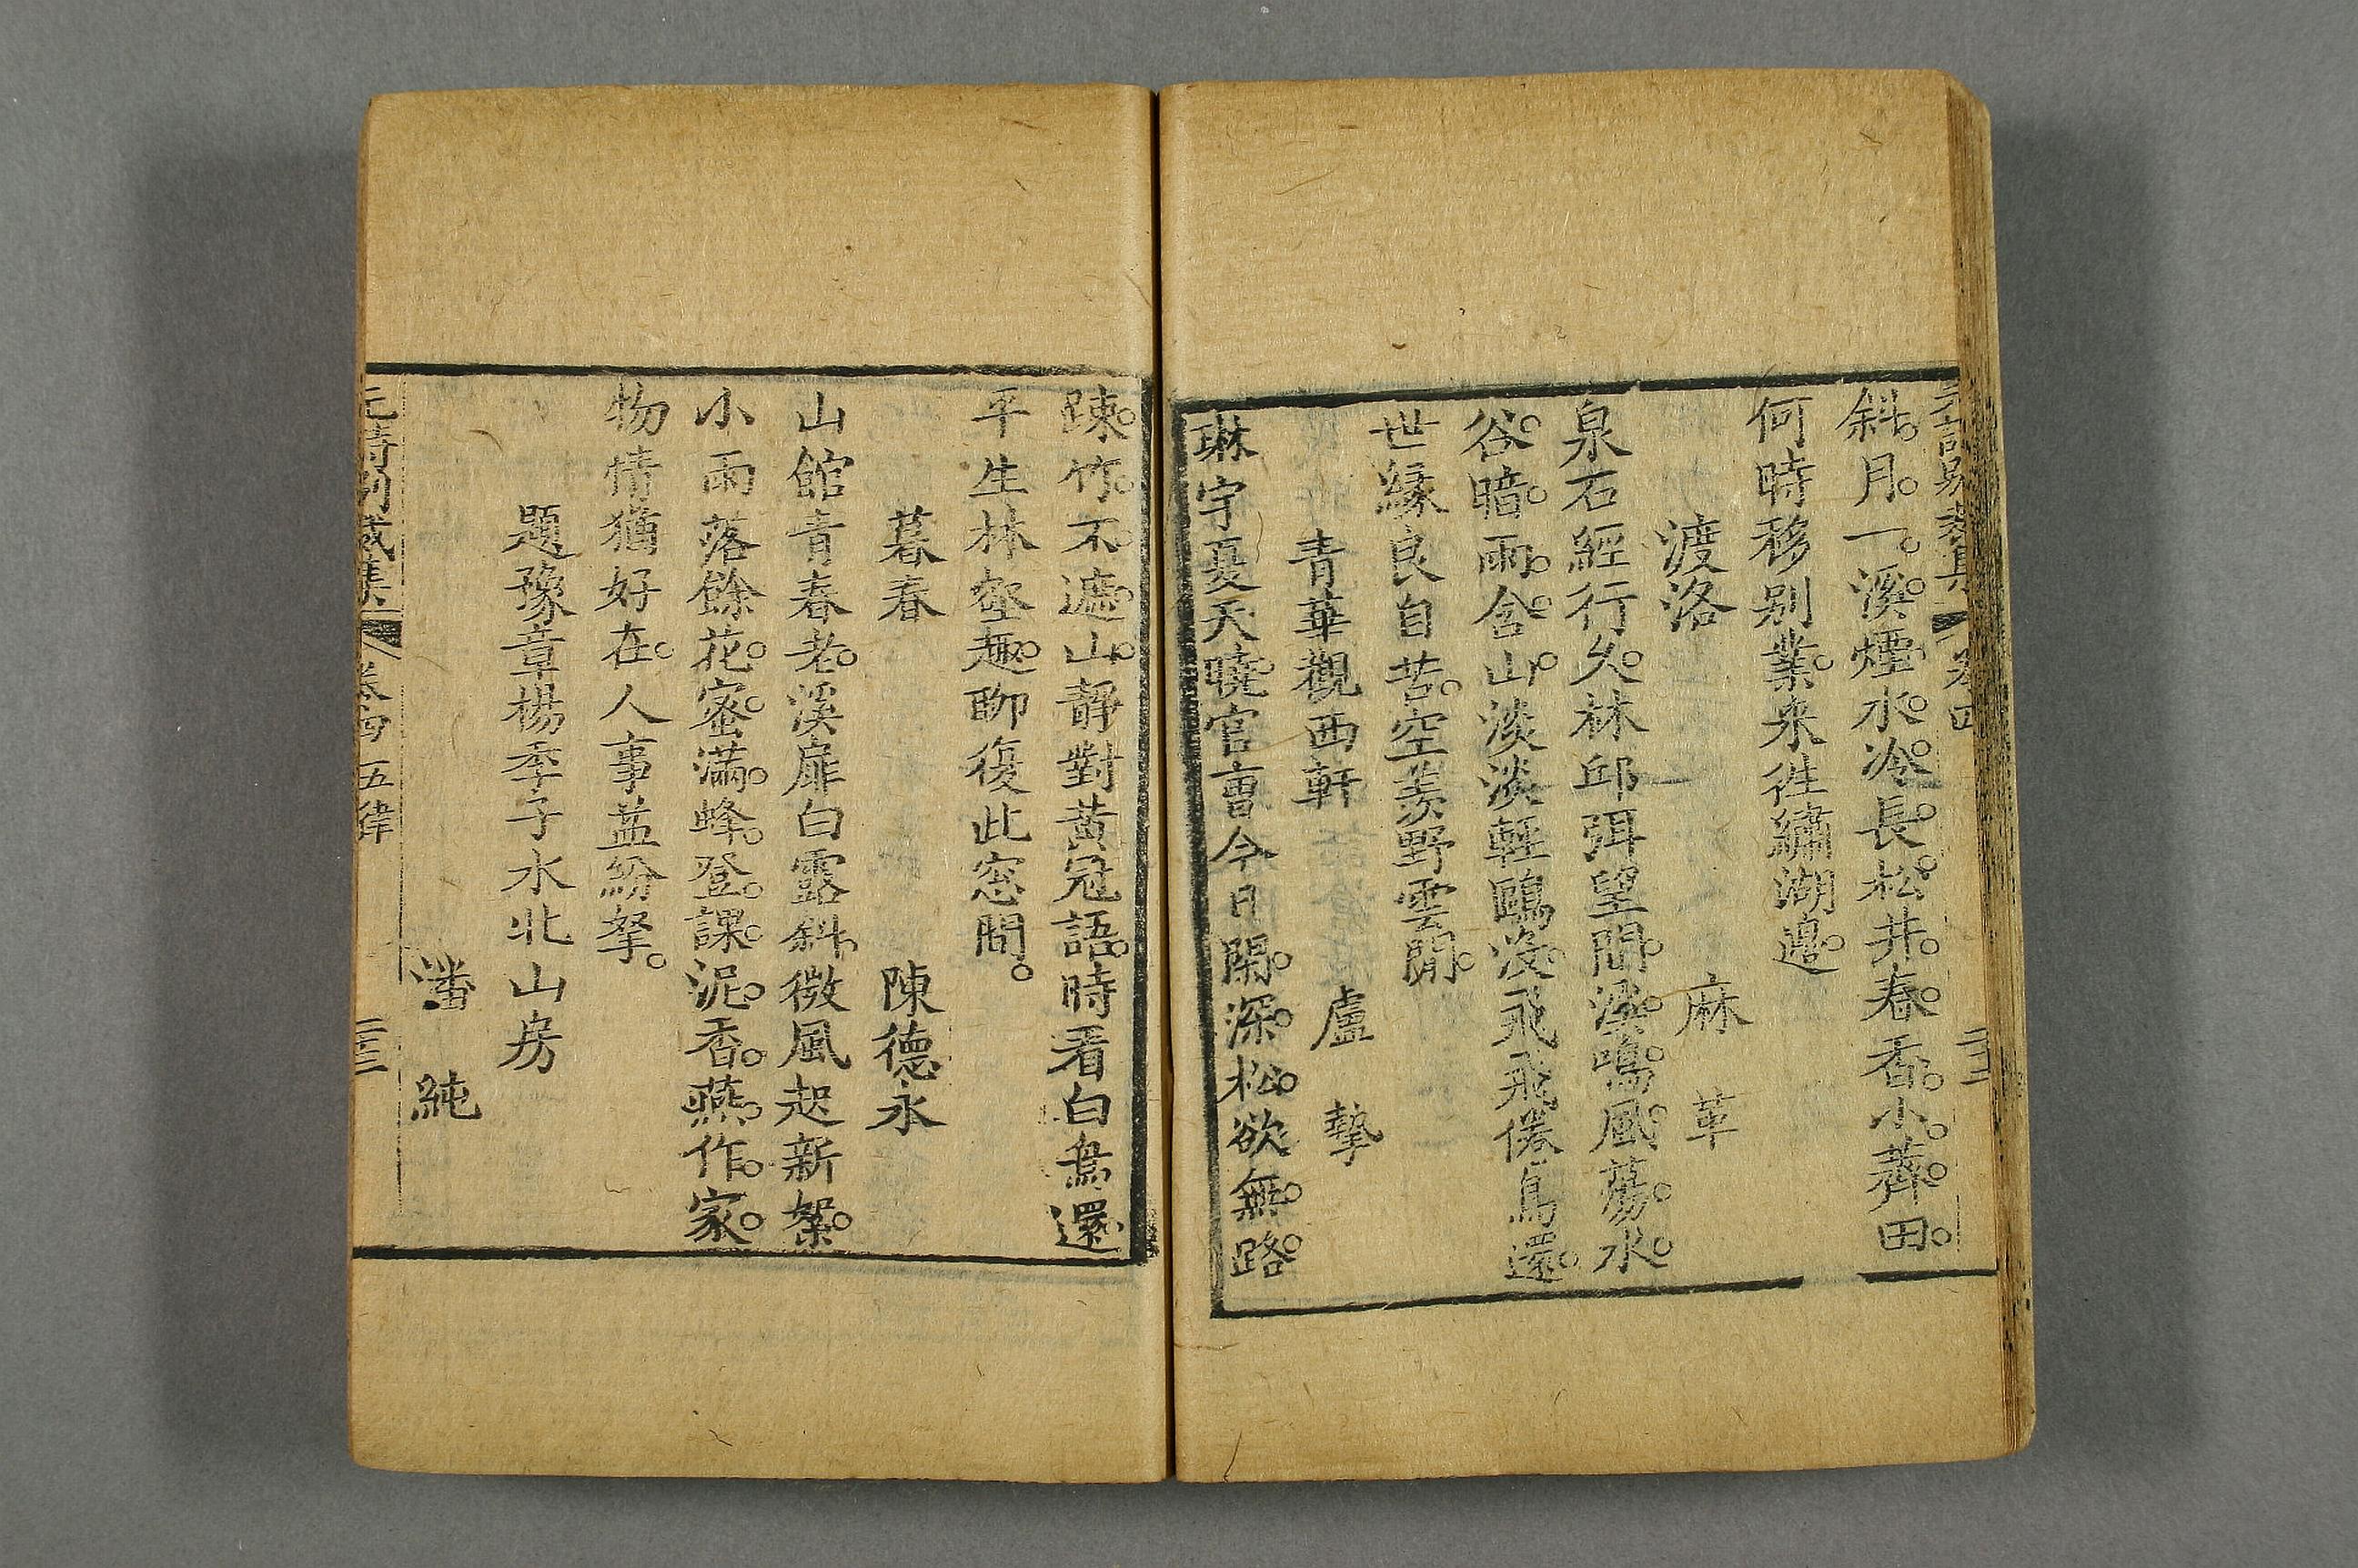 斜月一溪煙水冷長松井春香小薺田
何時移别業来徃繡湖邉
渡洛 麻革
泉石經行久林邱弭望間溪鳴風蕩水
谷暗雨含山淡淡輕鷗没飛飛倦鳥還
世緣良自苦空羨野雲閒
青華觀西軒 盧摯
琳宇憂天曉官曹今日閑深松欲無路
踈竹不遮山靜對黃冠語時看白鳥還
平生林壑趣聊復此窓間
暮春 陳德永
山館青春老溪扉白露斜微風起新絮
小雨落餘花蜜滿蜂登課泥香燕作家
物情猶好在人事益紛拏
題豫章楊季子水北山房
潘純
元詩别裁集 卷四 五律 二三